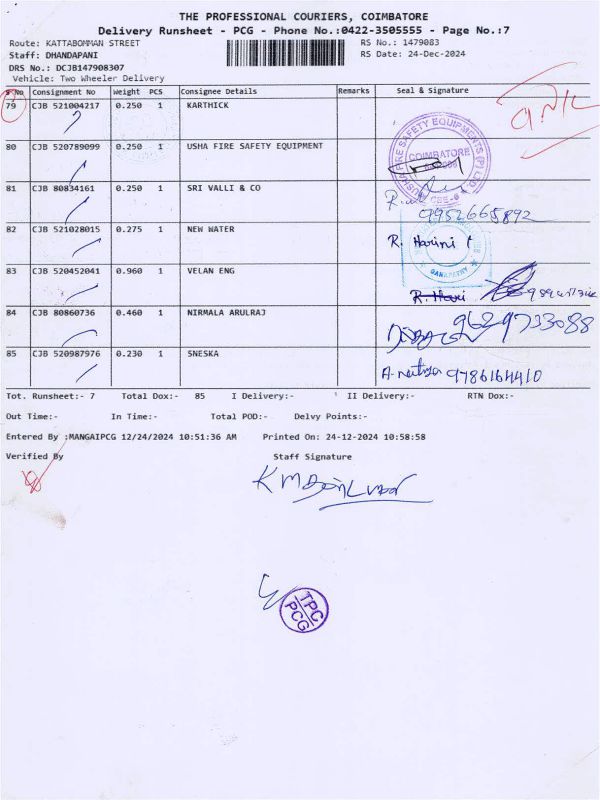 THE PROFESSIONAL COURIERS, COIMBATORE
Delivery Runsheet - PCG - Phone No.:0422-3505555 - Page No.:7
Route: KATTABOMMAN STREET RS No.: 1479083
Staff: DHANDAPANI RS Date: 24-Dec-2024
DRS No.: DCJB147908307
Vehicle: Two Wheeler Delivery
S No Consignment No Weight PCS Consignee Details Remarks Seal & Signature
79 CJB 521004217 0.250 1 KARTHICK
80 CJB 520789099 0.250 1 USHA FIRE SAFETY EQUIPMENT
COIMBATORE
81 CJB 80834161 0.250 1 SRI VALLI & CO
9952665892
82 CJB 521028015 0.275 1 NEW WATER R. Harini
GANAPATHY
83 CJB 520452041 0.960 1 VELAN ENG R. Hari
84 CJB 80860736 0.460 1 NIRMALA ARULRAJ 9629733088
85 CJB 520987976 0.230 1 SNESKA 9786164410
Tot. Runsheet:- 7 Total Dox:- 85 I Delivery:- II Delivery:- RTN Dox:-
Out Time:- In Time:- Total POD:- Delvy Points:-
Entered By :MANGAIPCG 12/24/2024 10:51:36 AM Printed On: 24-12-2024 10:58:58
Verified By Staff Signature
TPC
PCG